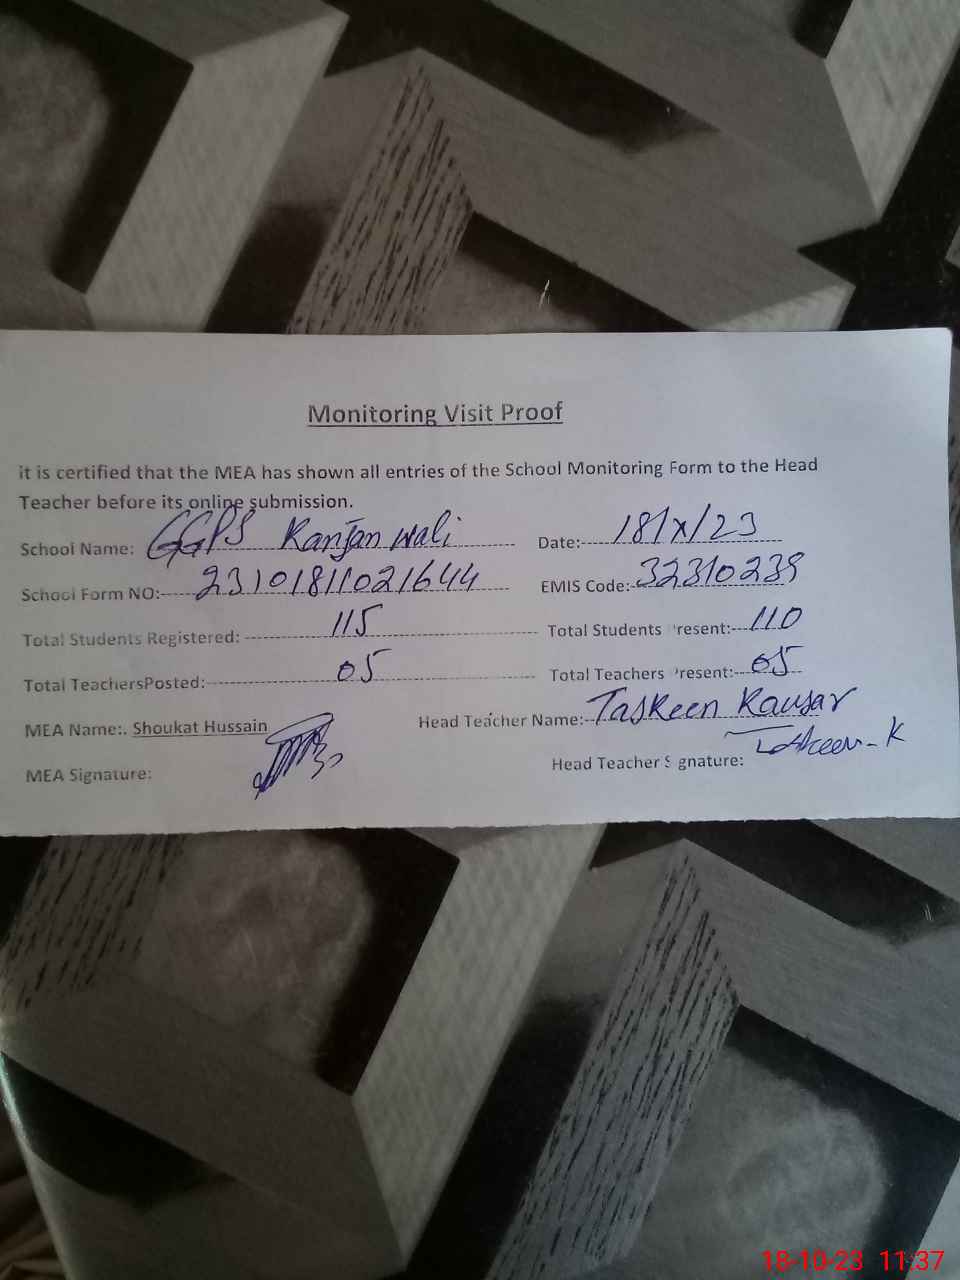 Monitoring Visit Proof
it is certified that the MEA has shown all entries of the School Monitoring Form to the Head
Teacher before its online submission.
School Name: GGPS Ranjan Wali Date: 18/X/23
School Form NO: 23101811021644 EMIS Code: 32310239
Total Students Registered: 115 Total Students Present: 110
Total TeachersPosted: 05 Total Teachers Present: 05
MEA Name:. Shoukat Hussain Head Teacher Name: Taskeen Kausar
MEA Signature: Head Teacher Signature: Taskeen-K
18-10-23 11:37